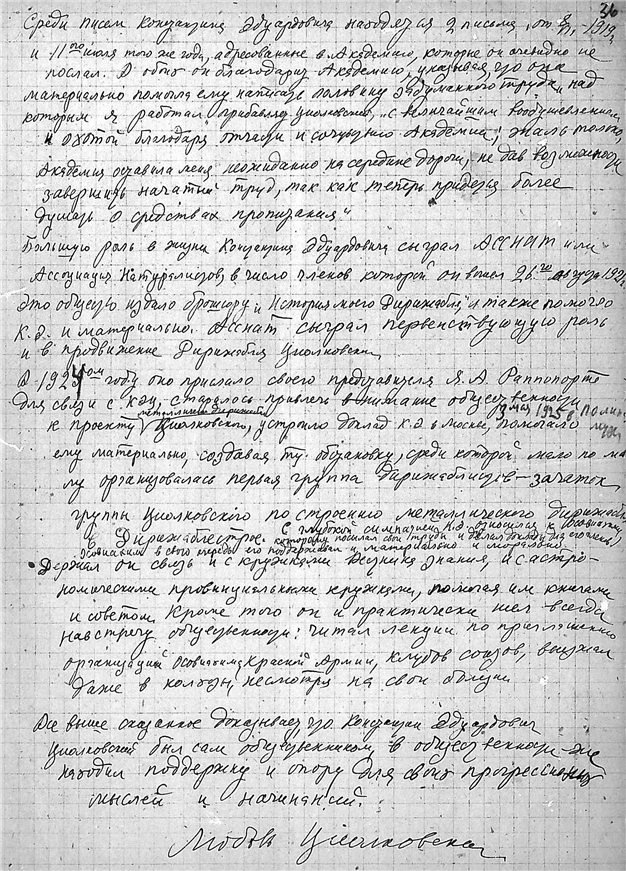 26
Среди писем Константина Эдуардовича находятся 2 письма, от 1919г.
и 11го июля того же года, адресованные в Академию, которые он очевидно не
послал. В обоих он благодарит Академию, указывая, что она
материально помогла ему написать половину задуманного труда, „над
которым я работал прибавляет Циолковский, „с величайшим воодушевлением
и охотой благодаря отчасти и сочувствию Академии; жаль только,
Академия оставила меня неожиданно на середине дороги, не дав возможности
завершить начатый труд, так как теперь придется более
думать о средствах пропитания"
Большую роль в жизни Константина Эдуардовича сыграл АССНАТ или
Ассоциация Натуралистов, в число членов которой он вошел 26го
Это общество издало брошюру „История моего Дирижабля", а также помогло
К.Э. и материально. Асснат сыграл первенствующую роль
и в продвижение Дирижабля Циолковский
В 1924ом году оно прислало своего представителя Я.А. Раппопорта
для связи с К.Э., старалось привлечь внимание общественности
металлического дирижабля 3 мая 1925 в Политех муз
к проекту Циолковского, устроило доклад К.Э. в Москве, помогало
ему материально, создавая ту обстановку, среди которой мало по ма
лу организовалась первая группа Дирижаблистов — зачаток
группы Циолковского по строению металлического Дирижабля
в Дирижаблестрое. С глубокой симпатией К.Э. относился к Осоавиахиму,
которому посылал свои труды и делал доклады
Осоавиахим в свою очередь его поддерживал и материально и морально
Держал он связь и с кружками Вестника Знания, и с астро-
номическими провинциальными кружками, помогая им книгами
и советом. Кроме того он и практически шел всегда
навстречу общественности: читал лекции по приглашению
организаций Осоавиахима, Красной Армии, клубов союзов, выезжал
даже в колхозы, несмотря на свои болезни
Все выше сказанное доказывает, что Константин Эдуардович
Циолковский был сам общественником, в общественности же
находил поддержку и опору для своих прогрессивных
мыслей и начинаний.
Любовь Циолковская